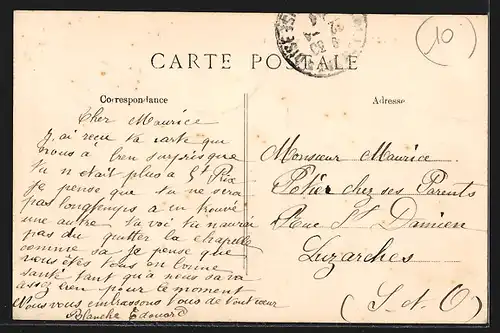 10
CARTE POSTALE
Correspondance
Adresse
Cher Maurice
J. ai reçu ta carte que
nous à bien surpris que
tu n était plus a St Prix
je pense que tu ne sera
pas longtemps a en trouvé
une autre tu voi tu naurai
pas du quitter la chapelle
comme sa je pense que
vous êtes tous en bonne
santé tant qu'a nous sa va
assez bien pour le moment
Nous vous embrassons tous de tout cœur
Blanche Edouard
Monsieur Maurice
Potier chez ses Parents
Rue St Damien
Luzarches
(S-et-O)